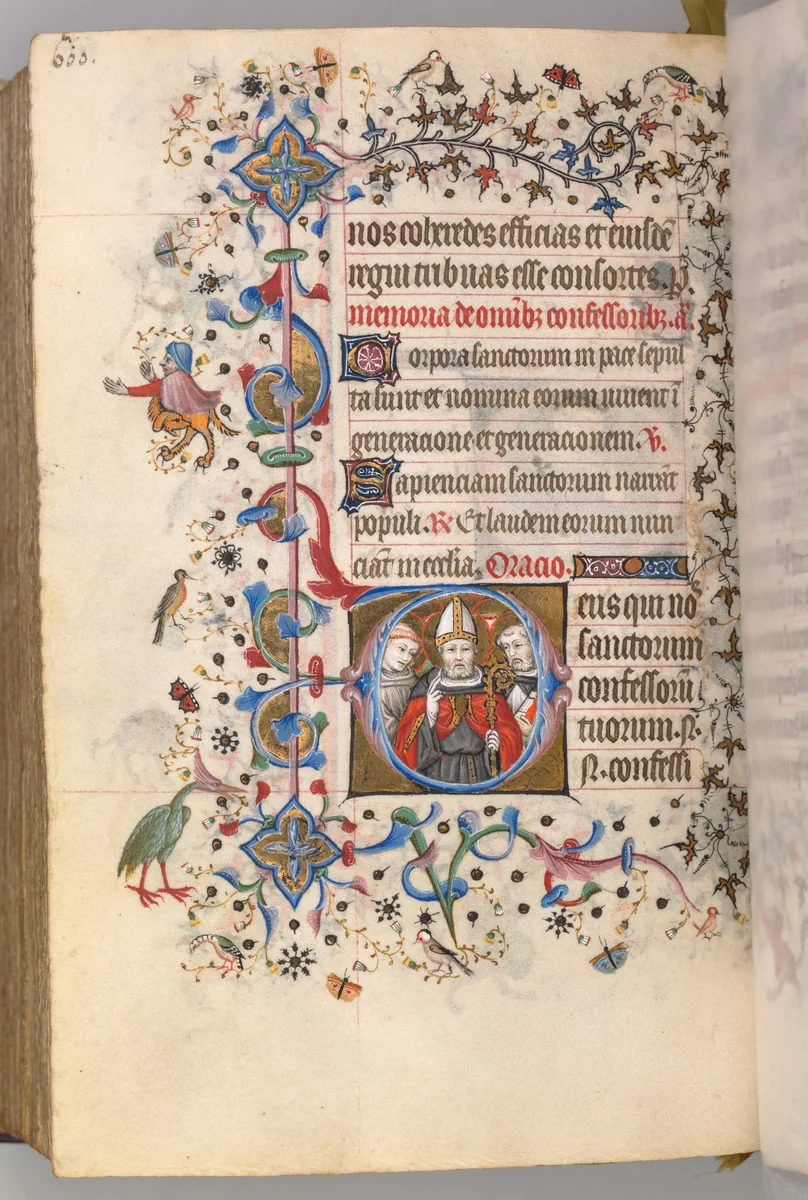 nos coheredes efficias et eiusdē
regni tribuas esse consortes. p.
memoria de om̄ibꝫ confessoribꝫ. a.
Corpora sanctorum in pace sepul
ta sunt et nomina eorum uiuent ī
generacione et generacionem. ꝟ.
Sapienciam sanctorum narrāt
populi. ℟ Et laudem eorum nun
ciāt in ecc̄lia. Oracio.
Deus qui nos
sanctorum
confessorū
tuorum. N.
N. confessi